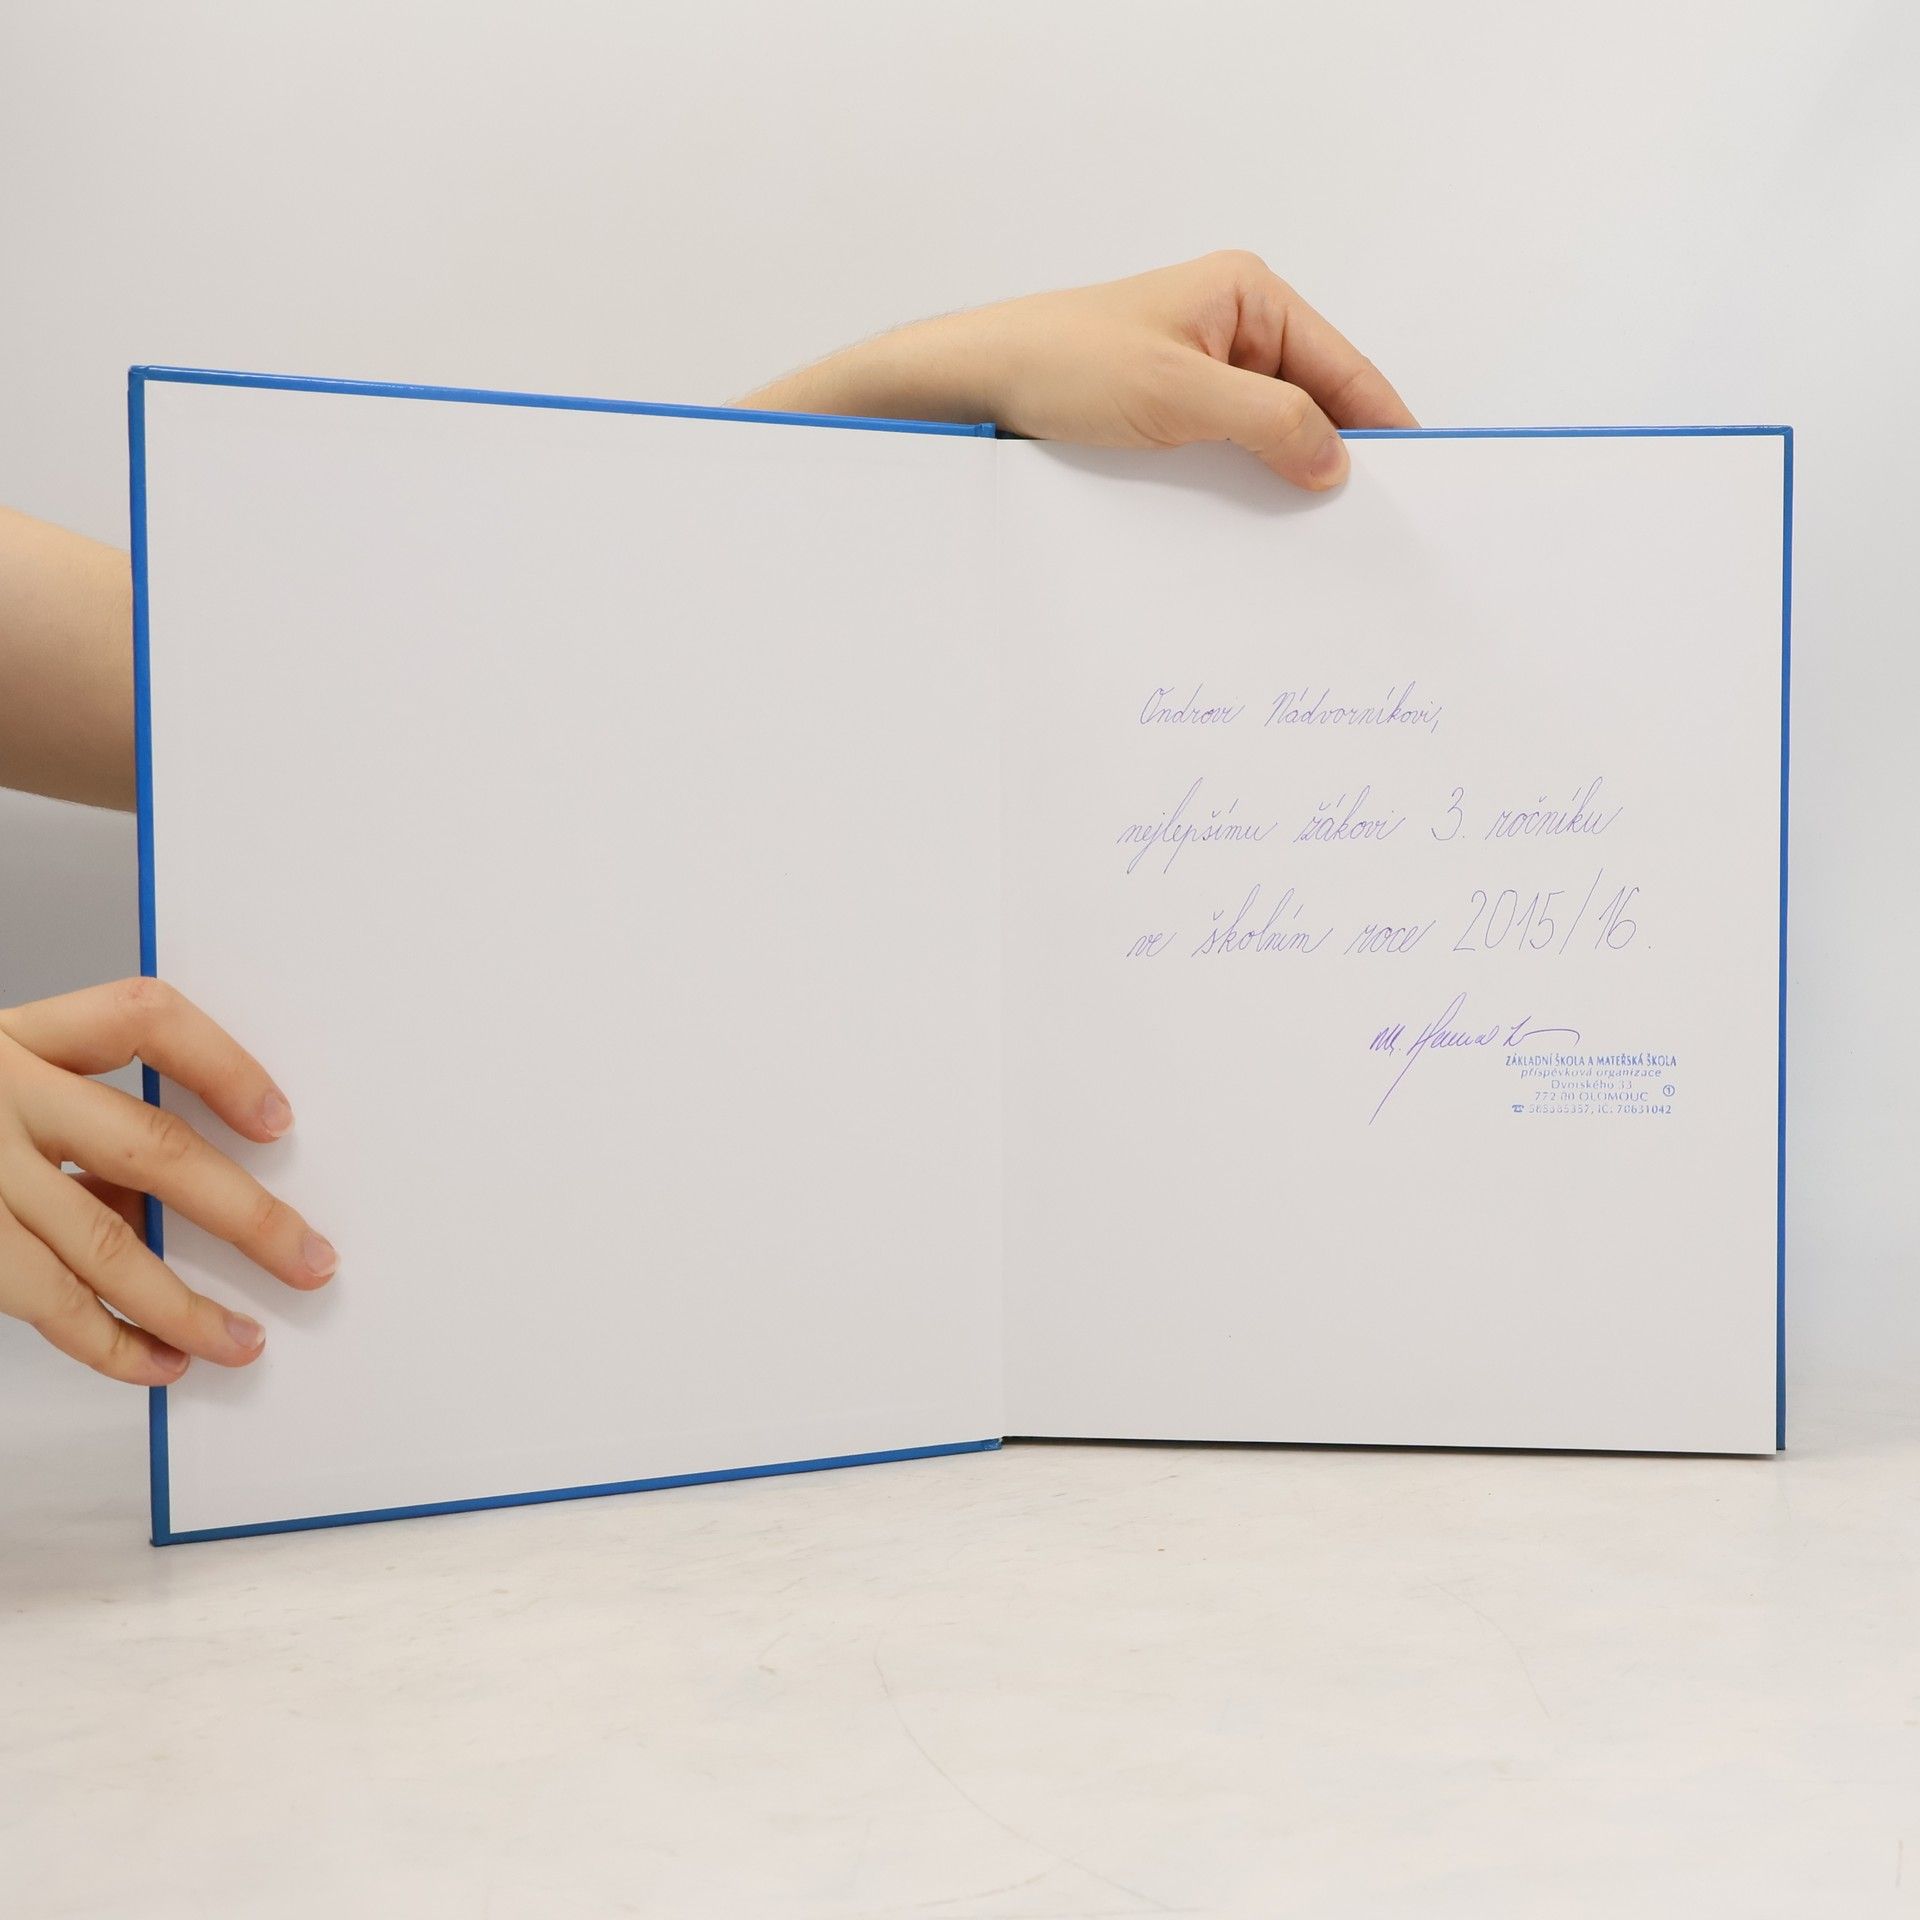 Ondrovi Nádvorníkovi,
nejlepšímu žákovi 3. ročníku
ve školním roce 2015/16.
ZÁKLADNÍ ŠKOLA A MATEŘSKÁ ŠKOLA
příspěvková organizace
Dvorského 33
772 00 OLOMOUC 1
☎ 585385387, IČ: 70631042